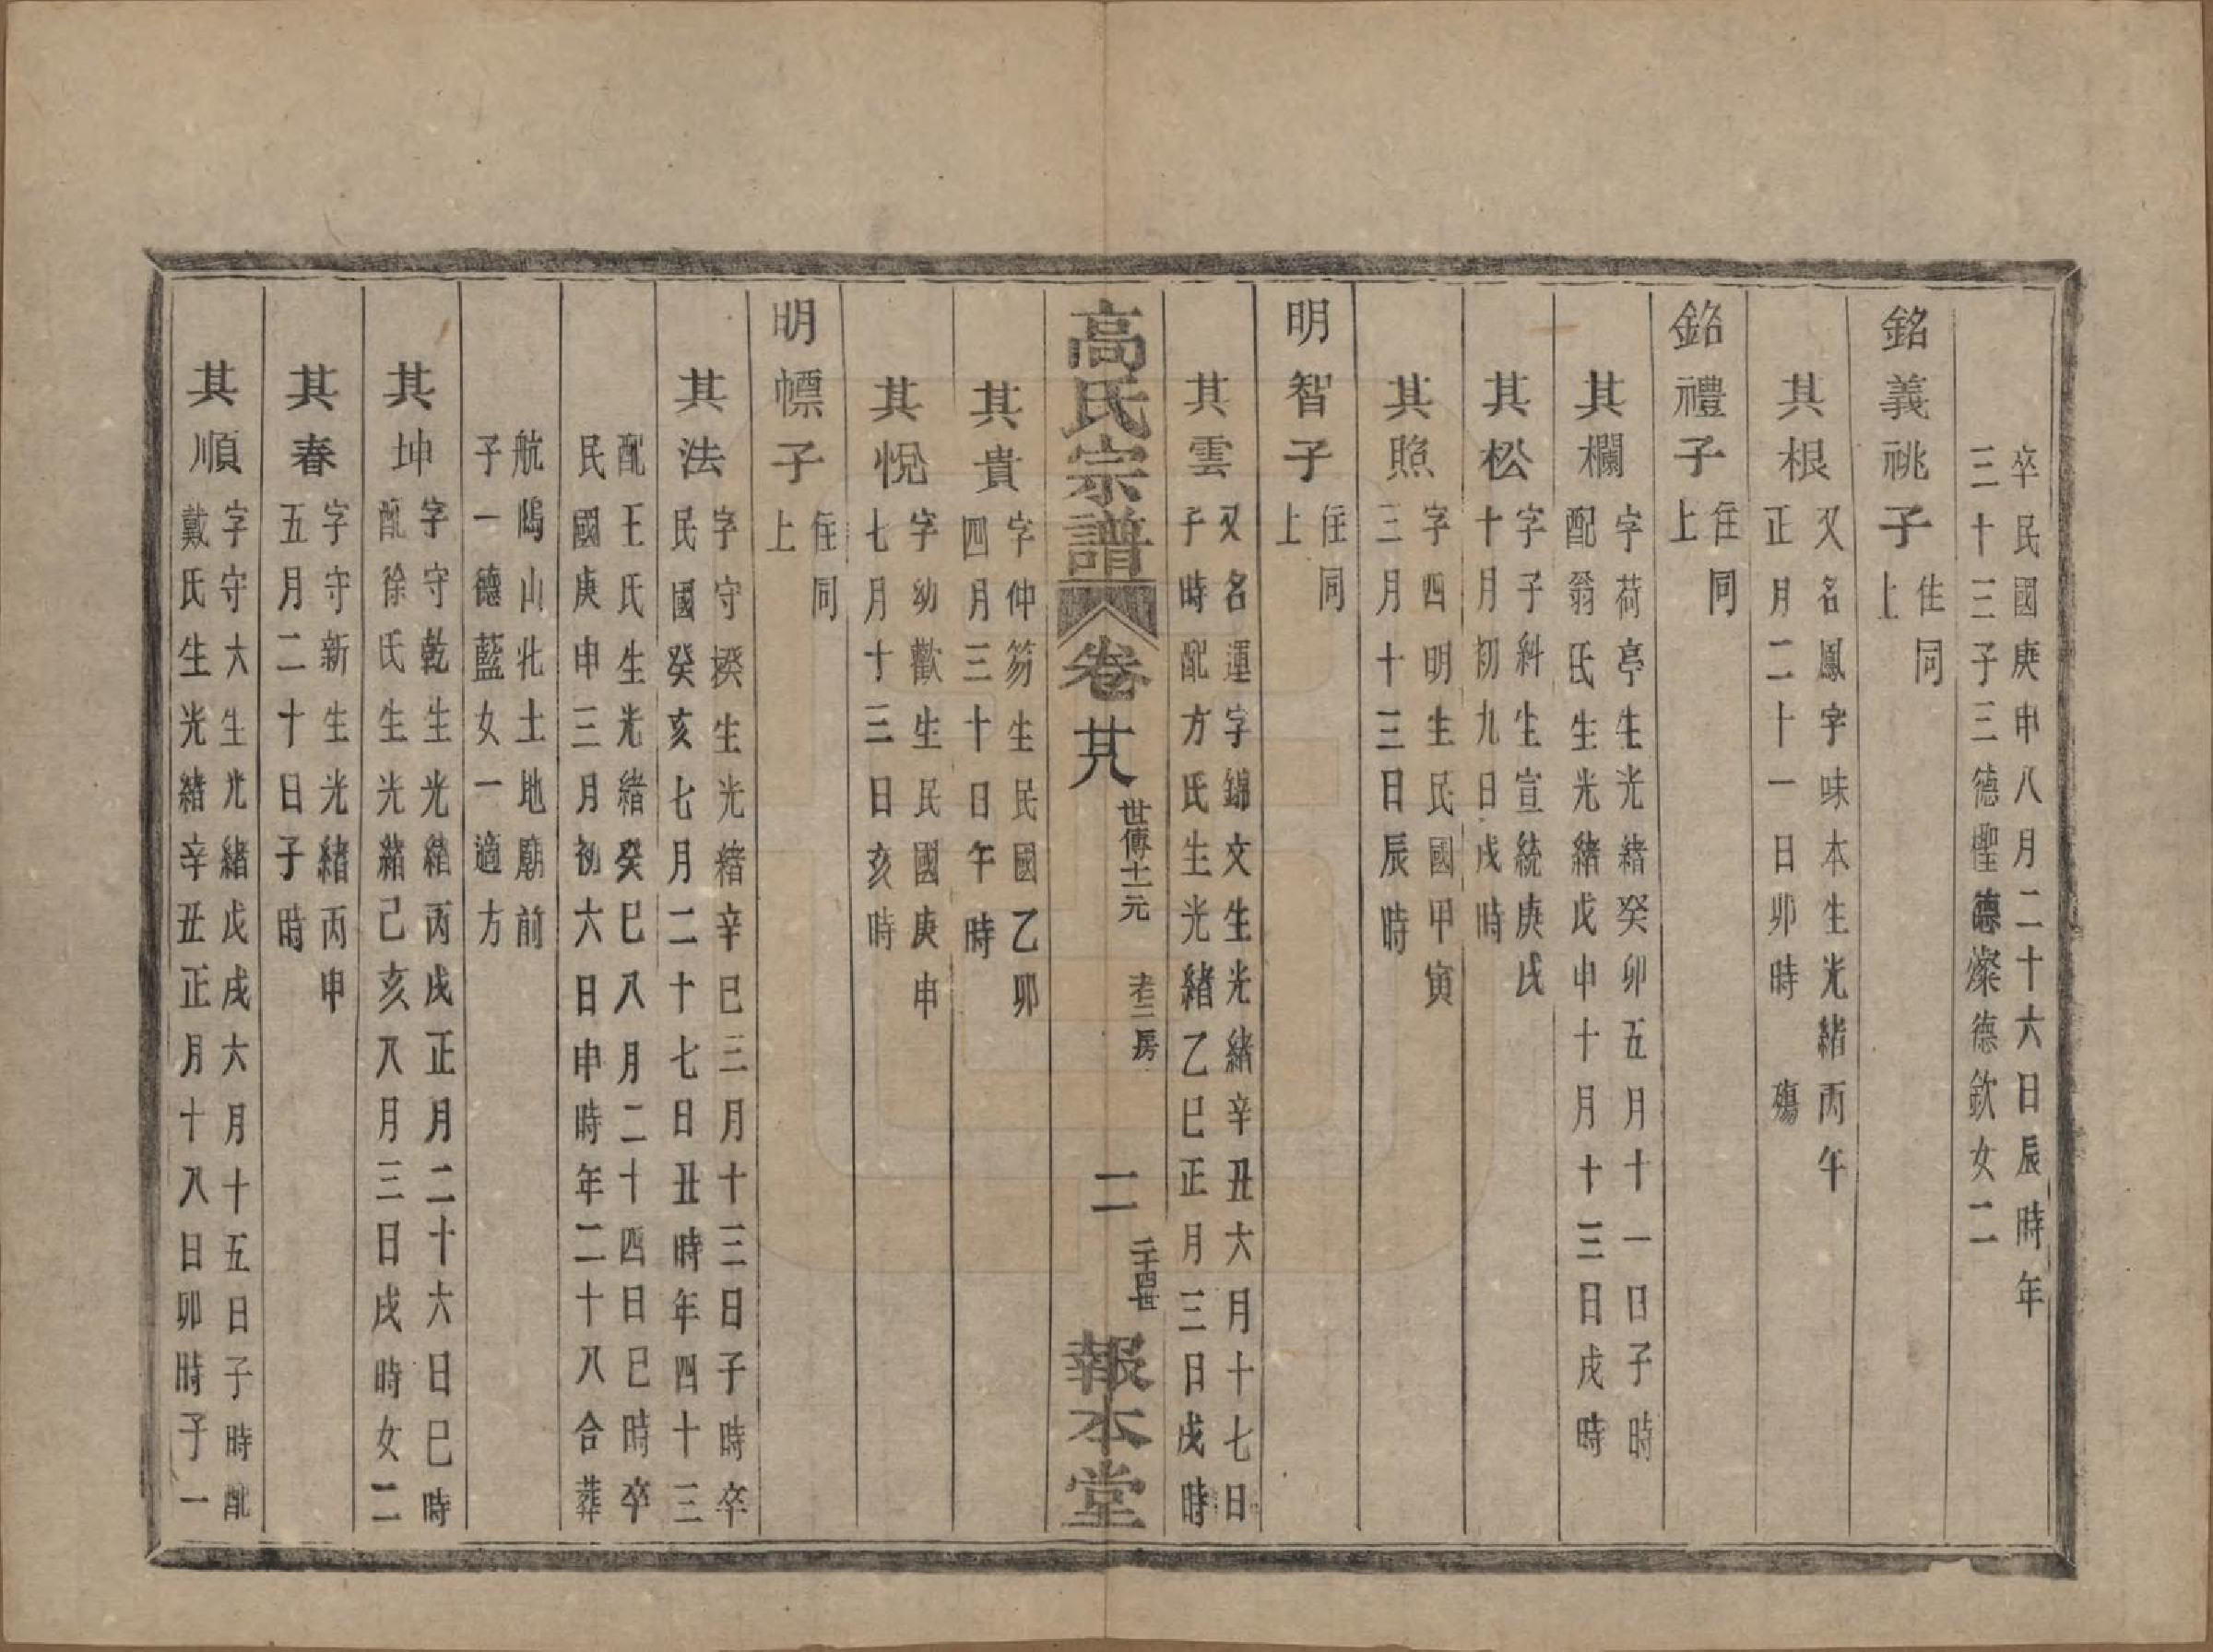 卒民國庚申八月二十六日辰時年
三十三子三德㮨德燦德欽女二
銘義祧子住同
上
其根又名鳳字味本生光緒丙午
正月二十一日卯時 殤
銘禮子住同
上
其欄字荷亭生光緒癸卯五月十一日子時
配翁氏生光緒戊申十月十三日戌時
其松字子科生宣統庚戌
十月初九日戌時
其煦字四明生民國甲寅
三月十三日辰時
明智子住同
上
其雲又名運字錦文生光緒辛丑六月十七日
子時配方氏生光緒乙巳正月三日戌時
高氏宗譜 卷廿八 世傳十二元 老二房 二 二十四世 報本堂
其貴字仲笏生民國乙卯
四月三十日午時
其悅字幼歡生民國庚申
七月十三日亥時
明幖子住同
上
其法字守揆生光緒辛巳三月十三日子時卒
民國癸亥七月二十七日丑時年四十三
配王氏生光緒癸巳八月二十四日巳時卒
民國庚申三月初六日申時年二十八合葬
航隖山北土地廟前
子一德藍女一適方
其坤字守乾生光緒丙戌正月二十六日巳時
配徐氏生光緒己亥八月三日戌時女二
其春字守新生光緒丙申
五月二十日子時
其順字守大生光緒戊戌六月十五日子時配
戴氏生光緒辛丑正月十八日卯時子一